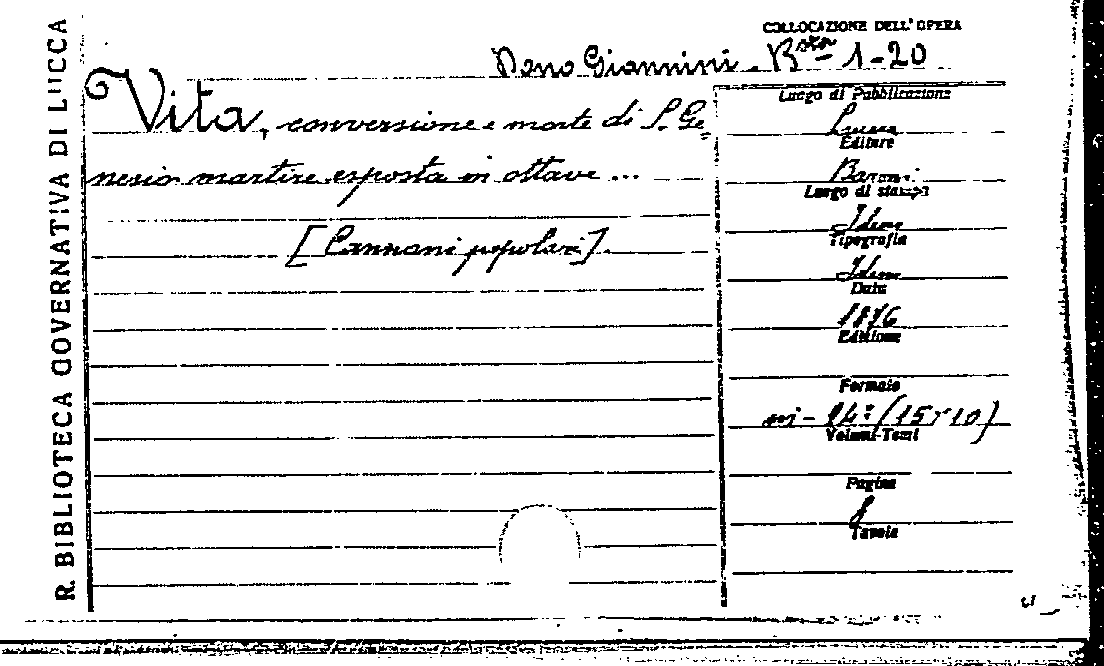 R. BIBLIOTECA GOVERNATIVA DI LUCCA
COLLOCAZIONE DELL'OPERA
Dono Giannini. B.sta 1-20
Vita, conversione e morte di S. Ge-
nesio martire esposta in ottave ...
[Cannani popolari].
Luogo di Pubblicazione
Lucca
Editore
Baroni
Luogo di stampa
Idem
Tipografia
Idem
Data
1876
Edizione
Formato
in-24° (15x10)
Volumi-Tomi
Pagine
8
Tavole